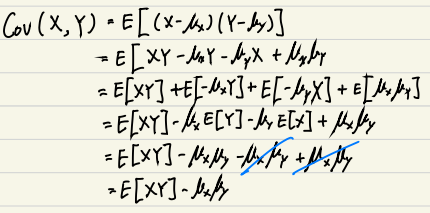 Cov(X,Y) = E[(X-μₓ)(Y-μᵧ)]
= E[XY - μₓY - μᵧX + μₓμᵧ
= E[XY] + E[-μₓY] + E[-μᵧX] + E[μₓμᵧ]
= E[XY] - μₓE[Y] - μᵧE[X] + μₓμᵧ
= E[XY] - μₓμᵧ - μₓμᵧ + μₓμᵧ
= E[XY] - μₓμᵧ